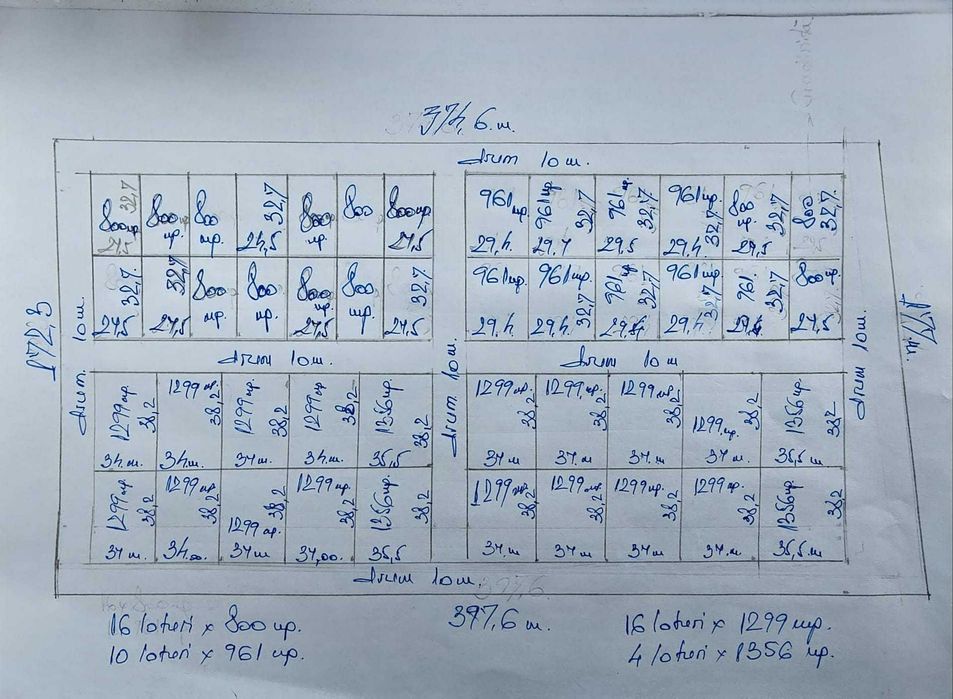 374,6 m.
drum 10 m.
800 mp. 32,7 24,5
800 mp.
800 mp.
32,7 24,5
800 mp.
800
800 mp. 24,5
961 mp. 29,4
961 mp. 32,7 29,4
961 mp. 32,7 29,5
961 mp. 32,7 29,4
32,7 24,5
800 32,7
32,7 24,5
32,7 24,5
800 mp.
800 mp.
800 mp. 24,5
800 mp.
32,7 24,5
961 mp. 29,4
961 mp. 32,7 29,4
961 mp. 32,7
961 mp. 32,7 29,4
961 32,7
800 mp. 24,5
172,3
drum 10 m.
drum 10 m.
drum 10 m.
drum 10 m.
drum 10 m.
177 m
1299 mp. 38,2 34 m.
1299 mp. 38,2 34 m.
1299 mp. 38,2 34 m
1299 mp 38,2 34 m.
1356 mp. 38,2 35,5
1299 mp. 38,2 34 m
1299 mp. 38,2 34 m
1299 mp. 38,2 34 m
1299 mp. 38,2 34 m.
1356 mp. 38,2 35,5 m
1299 mp. 38,2 34 m.
1299 mp. 38,2 34,00
38,2 1299 mp. 34 m
1299 mp. 38,2 34,00
1356 mp. 38,2 35,5
1299 mp. 38,2 34 m
1299 mp. 38,2 34 m
1299 mp. 38,2 34 m
1299 mp. 38,2 34 m
1356 mp. 38,2 35,5 m
drum 10 m.
397,6
397,6 m.
16 loturi x 800 mp.
10 loturi x 961 mp.
16 loturi x 1299 mp.
4 loturi x 1356 mp.